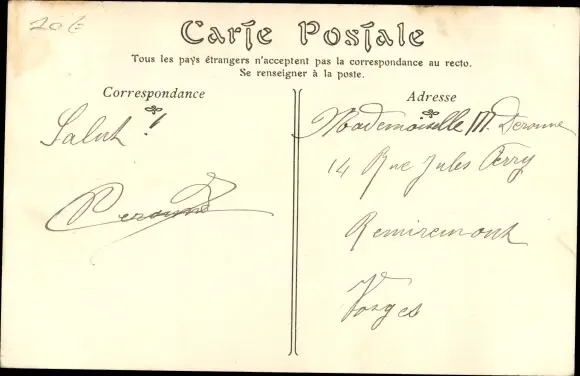 20€
Carte Postale
Tous les pays étrangers n'acceptent pas la correspondance au recto.
Se renseigner à la poste.
Correspondance
Salut !
Adresse
Mademoiselle M. Deronne
14 Rue Jules Ferry
Remiremont
Vosges